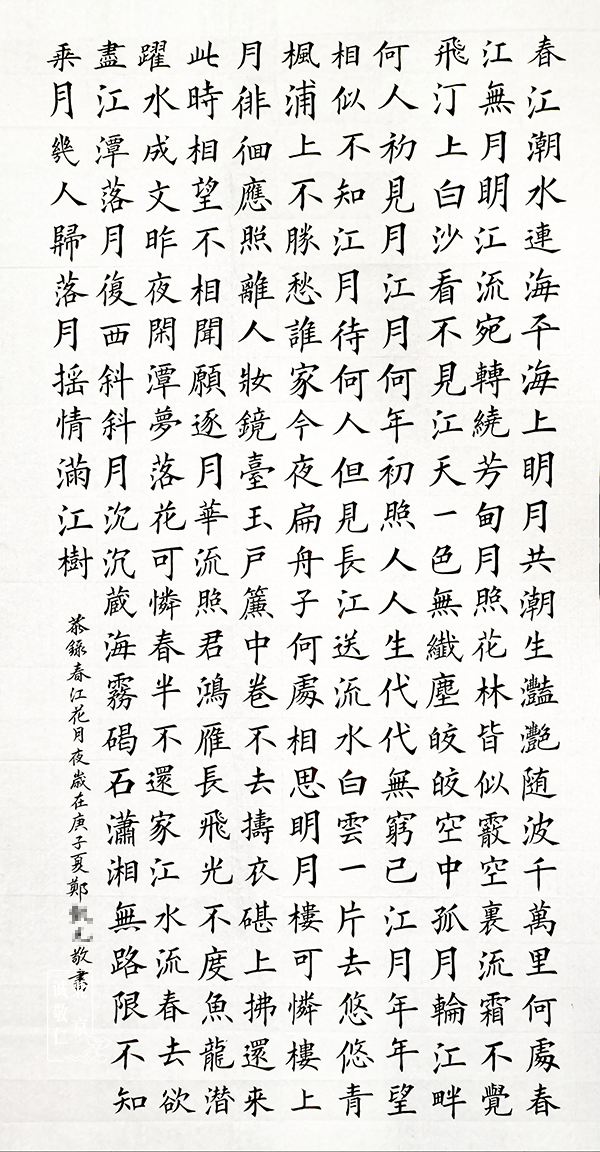 春江潮水連海平海上明月共潮生灩灩随波千萬里何處春
江無月明江流宛轉繞芳甸月照花林皆似霰空裏流霜不覺
飛汀上白沙看不見江天一色無纖塵皎皎空中孤月輪江畔
何人初見月江月何年初照人人生代代無窮已江月年年望
相似不知江月待何人但見長江送流水白雲一片去悠悠青
楓浦上不勝愁誰家今夜扁舟子何處相思明月樓可憐樓上
月徘徊應照離人妝鏡臺玉戶簾中卷不去擣衣碪上拂還来
此時相望不相聞願逐月華流照君鴻雁長飛光不度魚龍潜
躍水成文昨夜閑潭夢落花可憐春半不還家江水流春去欲
盡江潭落月復西斜斜月沉沉蔵海霧碣石瀟湘無路限不知
乘月幾人歸落月摇情滿江樹
恭録春江花月夜歲在庚子夏鄭敬書